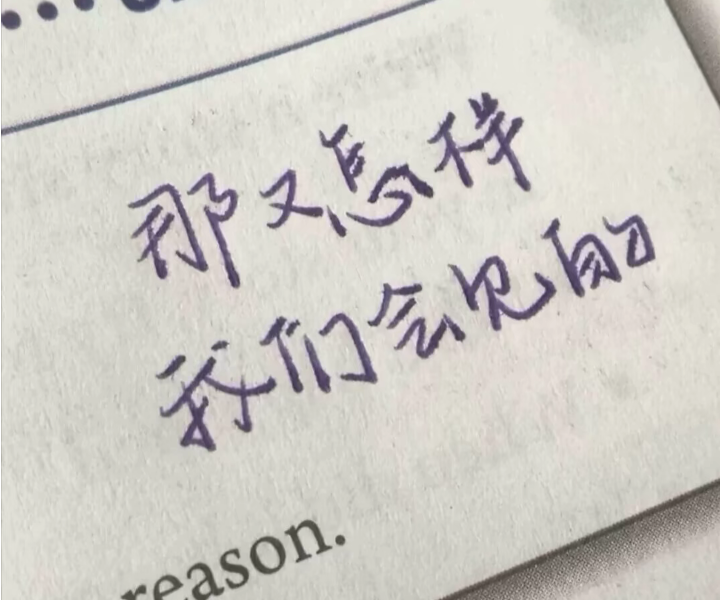 那又怎样
我们会见的
reason.